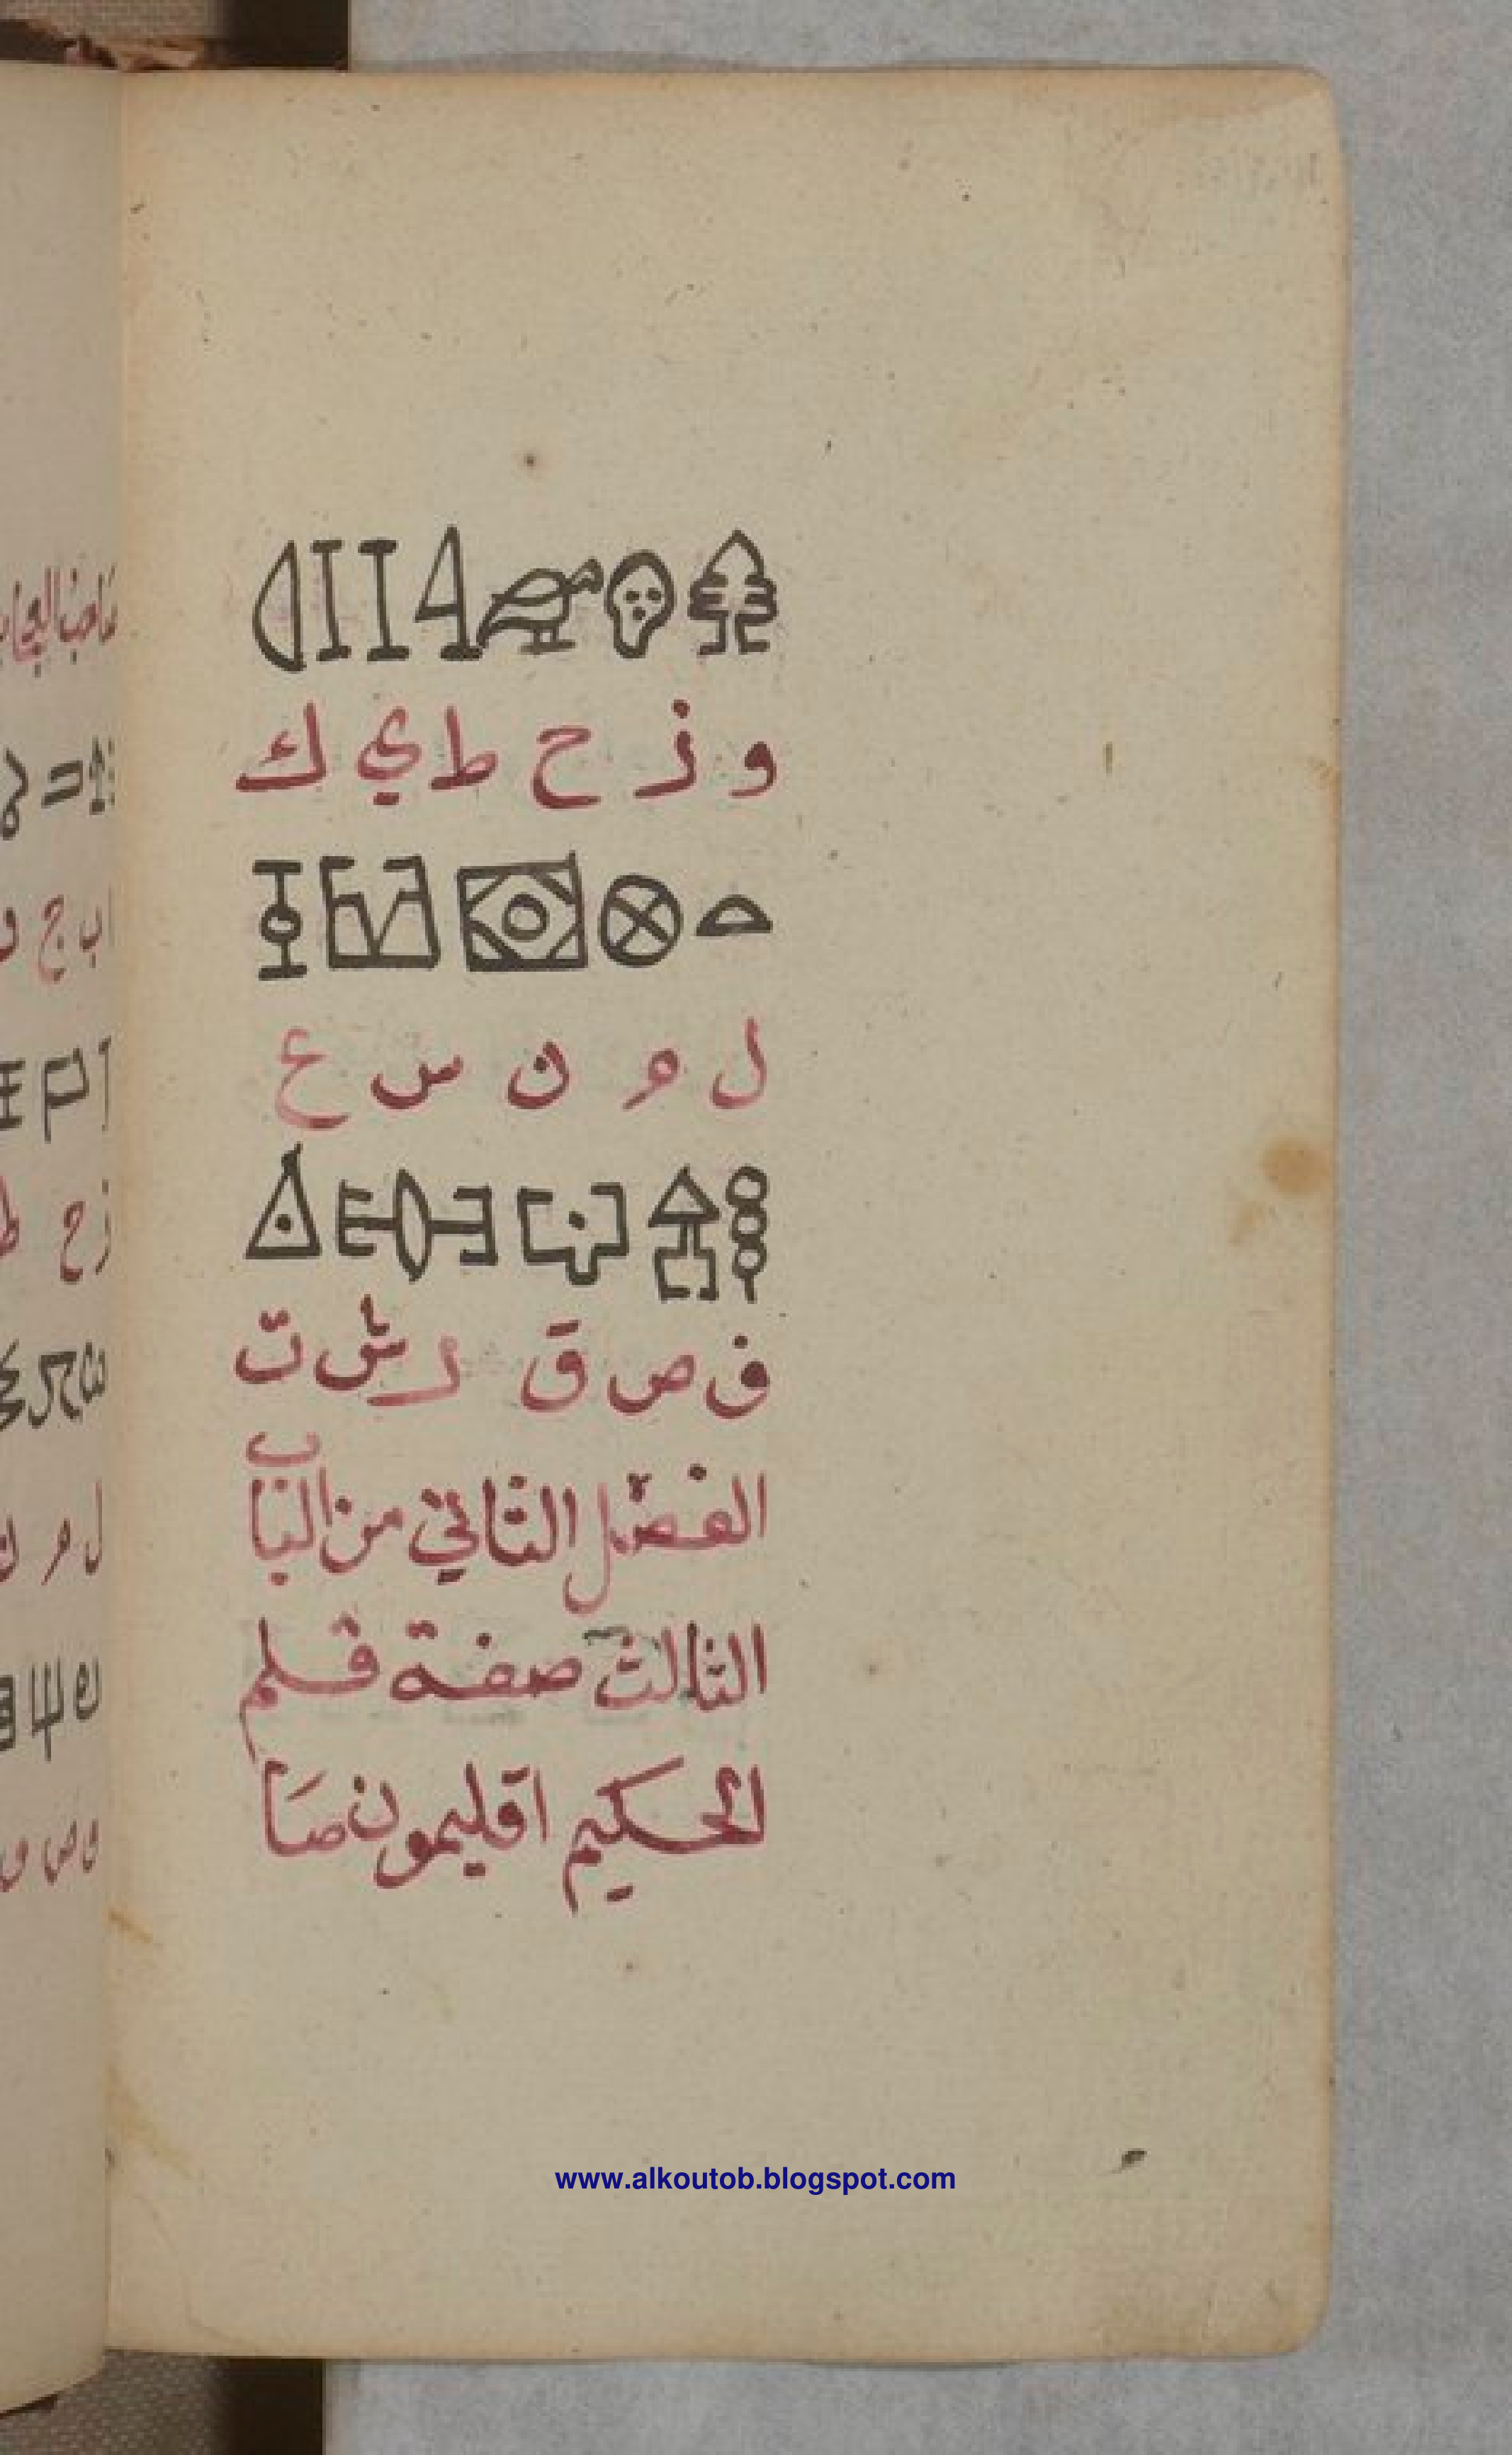 و ز ح ط ي ك
ل م ن س ع
ف ص ق ر ش ت
الفصل الثاني من الباب
الثالث صفة قلم
الحكيم اقليمون صا
www.alkoutob.blogspot.com